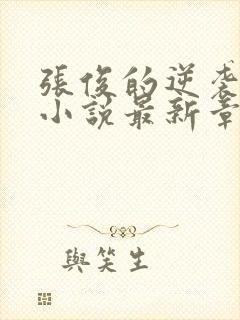 張俊的逆袭
小説最新章
與笑生